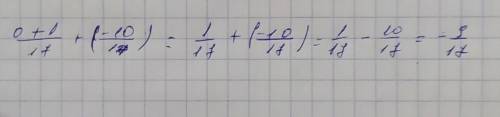 (0+1)/17 + (-10/17) = 1/17 + (-10/17) = 1/17 - 10/17 = -9/17